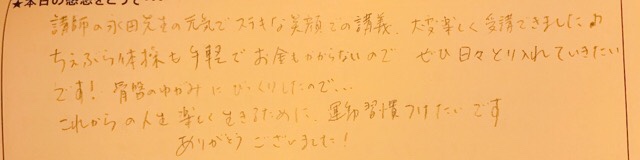 ★本日の感想をどうぞ・・・
講師の永田先生の元気でステキな笑顔での講義、大変楽しく受講できました♪
ちぇぶら体操も手軽でお金もかからないので ぜひ日々とり入れていきたい
です！骨盤のゆがみにびっくりしたので…
これからの人生楽しく生きるために、運動習慣つけたいです
ありがとうございました！